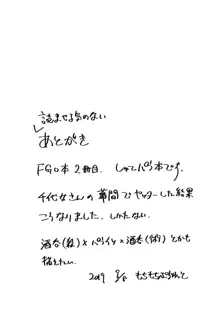 読ませる気のない
あとがき
FGO本2冊目、しゅてパラ本です。
千代女さんの幕間でヤッターした結果
こうなりました。しかたない。
酒呑(殺)×パライソ×酒呑(術)とかも
描きたい。
2019
もちもち